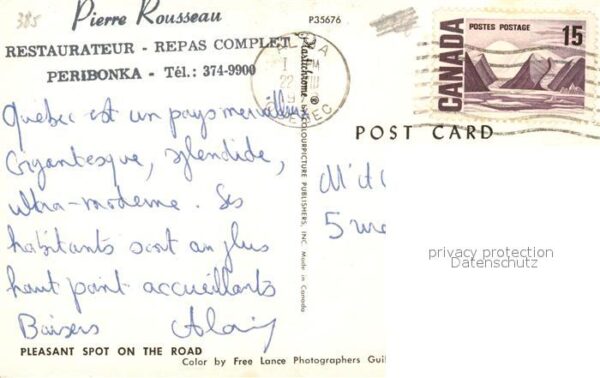 385
Pierre Rousseau
RESTAURATEUR - REPAS COMPLET
PERIBONKA - Tél.: 374-9900
P35676
Plastichrome ® BY COLOURPICTURE PUBLISHERS, INC. Made in Canada
CANADA
POSTES POSTAGE
15
POST CARD
Québec est un pays merveilleux
Gigantesque, splendide,
ultra-moderne. Ses
habitants sont au plus
haut point accueillants
Baisers Alain
5
privacy protection
Datenschutz
PLEASANT SPOT ON THE ROAD
Color by Free Lance Photographers Guil